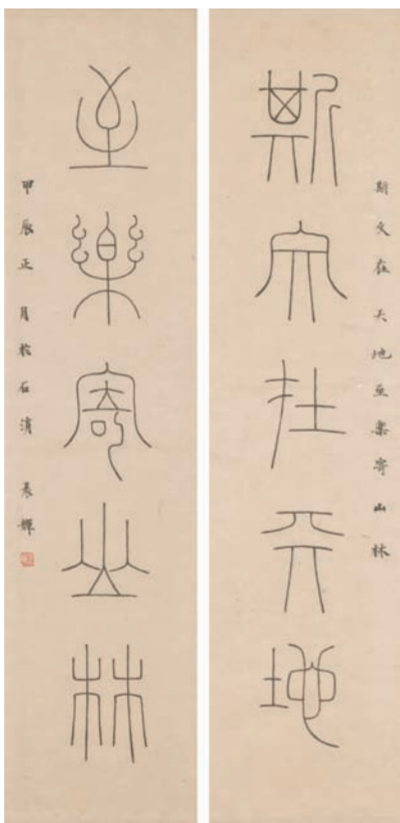 斯文在天地
斯文在天地至樂寄山林
至樂寄山林
甲辰正月於石濱 晨輝